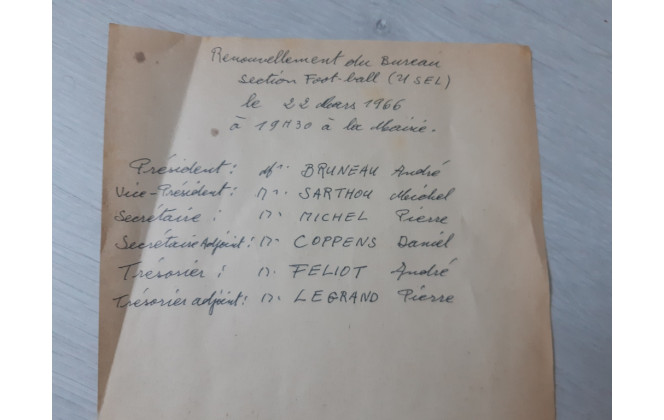 Renouvellement du Bureau
Section Foot-ball (USEL)
le 22 Mars 1966
à 19H30 à la Mairie.
Président : Mr. BRUNEAU André
Vice-Président : Mr. SARTHOU Michel
Secrétaire : Mr. MICHEL Pierre
Secrétaire Adjoint : Mr. COPPENS Daniel
Trésorier : Mr. FELIOT André
Trésorier adjoint : Mr. LEGRAND Pierre